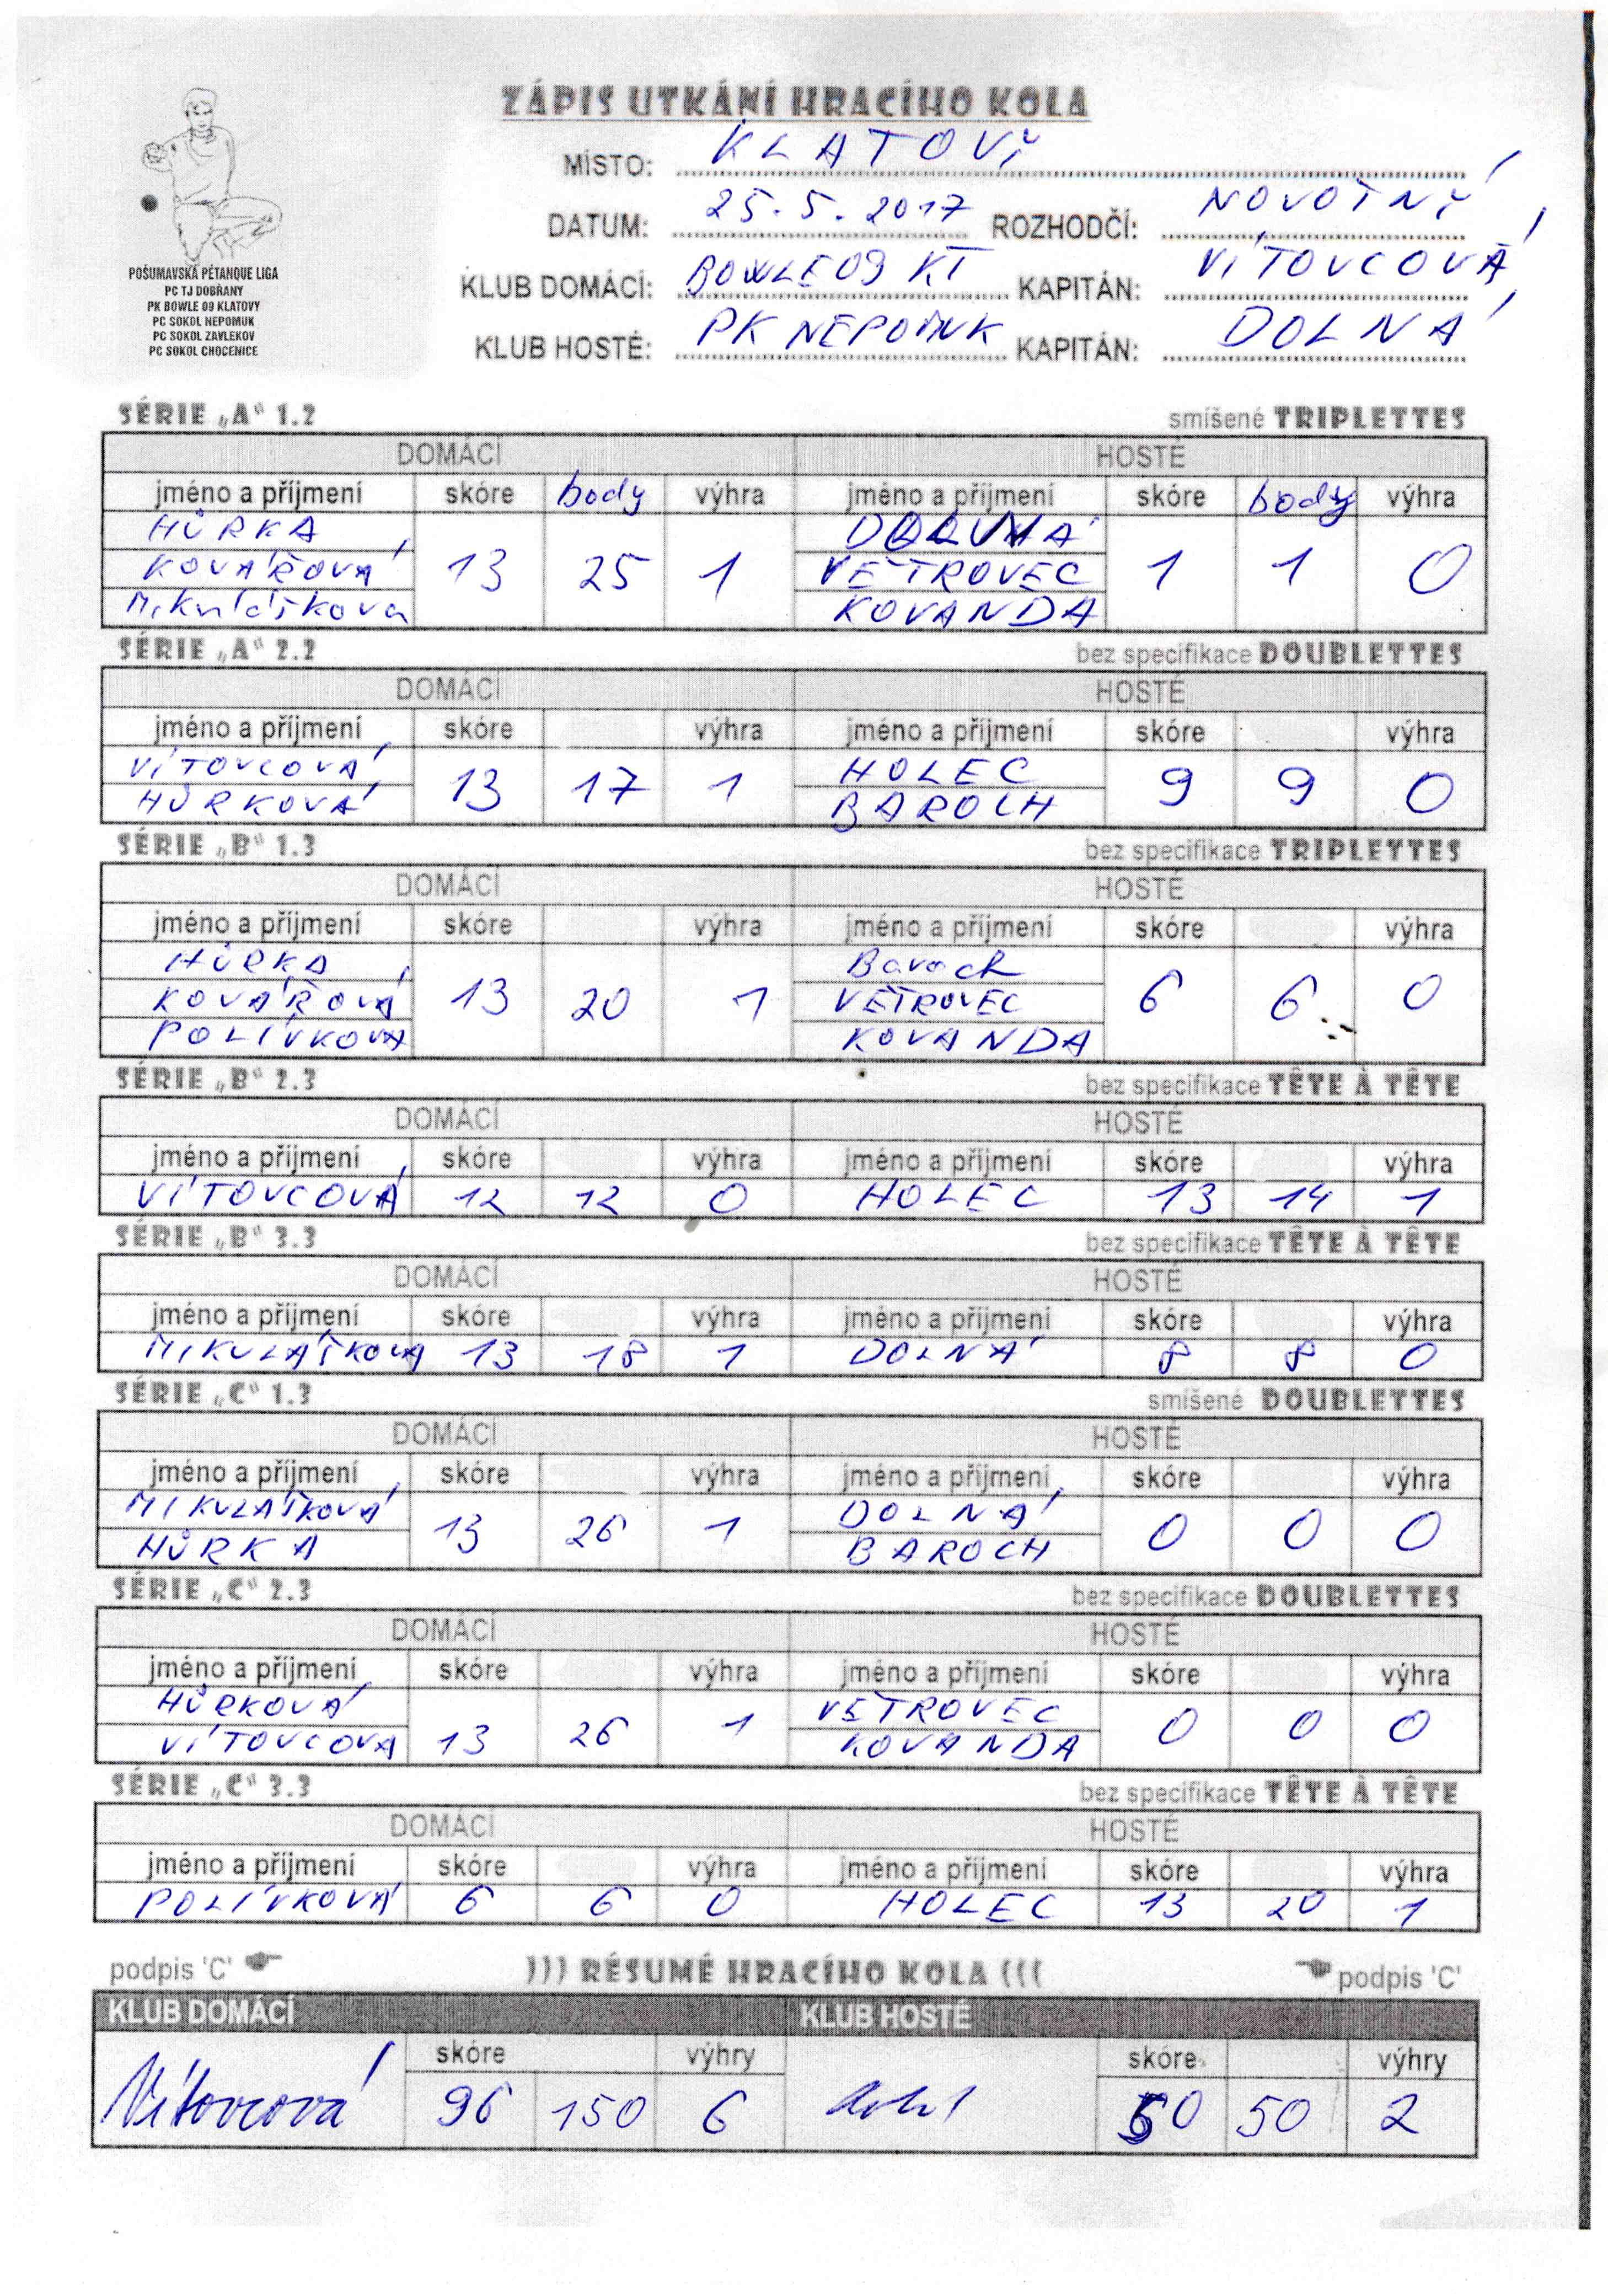 ZÁPIS UTKÁNÍ HRACÍHO KOLA
MÍSTO: KLATOVY
DATUM: 25.5.2017 ROZHODČÍ: NOVOTNÝ
KLUB DOMÁCÍ: BOWLE 09 KT KAPITÁN: VÍTOVCOVÁ
KLUB HOSTÉ: PK NEPOMUK KAPITÁN: DOLNÁ
POŠUMAVSKÁ PÉTANQUE LIGA
PC TJ DOBŘANY
PK BOWLE 09 KLATOVY
PC SOKOL NEPOMUK
PC SOKOL ZAVLEKOV
PC SOKOL CHOCENICE
SÉRIE „A“ 1.2 smíšené TRIPLETTES
DOMÁCÍ HOSTÉ
jméno a příjmení skóre body výhra jméno a příjmení skóre body výhra
HŮRKA DOLNÁ
KOVÁŘOVÁ 13 25 1 VĚTROVEC 1 1 0
Mikulášková KOVANDA
SÉRIE „A“ 2.2 bez specifikace DOUBLETTES
DOMÁCÍ HOSTÉ
jméno a příjmení skóre výhra jméno a příjmení skóre výhra
VÍTOVCOVÁ 13 17 1 HOLEC 9 9 0
HŮRKOVÁ BAROCH
SÉRIE „B“ 1.3 bez specifikace TRIPLETTES
DOMÁCÍ HOSTÉ
jméno a příjmení skóre výhra jméno a příjmení skóre výhra
HŮRKA Baroch
KOVÁŘOVÁ 13 20 1 VĚTROVEC 6 6 0
POLÍVKOVÁ KOVANDA
SÉRIE „B“ 2.3 bez specifikace TÊTE À TÊTE
DOMÁCÍ HOSTÉ
jméno a příjmení skóre výhra jméno a příjmení skóre výhra
VÍTOVCOVÁ 12 12 0 HOLEC 13 14 1
SÉRIE „B“ 3.3 bez specifikace TÊTE À TÊTE
DOMÁCÍ HOSTÉ
jméno a příjmení skóre výhra jméno a příjmení skóre výhra
MIKULÁŠKOVA 13 18 1 DOLNÁ 8 8 0
SÉRIE „C“ 1.3 smíšené DOUBLETTES
DOMÁCÍ HOSTÉ
jméno a příjmení skóre výhra jméno a příjmení skóre výhra
MIKULÁŠKOVÁ 13 26 1 DOLNÁ 0 0 0
HŮRKA BAROCH
SÉRIE „C“ 2.3 bez specifikace DOUBLETTES
DOMÁCÍ HOSTÉ
jméno a příjmení skóre výhra jméno a příjmení skóre výhra
HŮRKOVÁ 13 26 1 VĚTROVEC 0 0 0
VÍTOVCOVA KOVANDA
SÉRIE „C“ 3.3 bez specifikace TÊTE À TÊTE
DOMÁCÍ HOSTÉ
jméno a příjmení skóre výhra jméno a příjmení skóre výhra
POLÍVKOVÁ 6 6 0 HOLEC 13 20 1
podpis 'C' ))) RÉSUMÉ HRACÍHO KOLA ((( podpis 'C'
KLUB DOMÁCÍ KLUB HOSTÉ
skóre výhry skóre výhry
Vítovcová 96 150 6 50 50 2